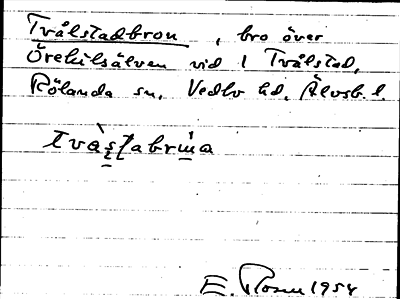 Tvålstadbron, bro över
Örekilsälven vid 1 Tvålstad,
Rölanda sn, Vedbo hd, Älvsb. l.
tvàs̱tabrṳ̄na
E. Rosen 1954